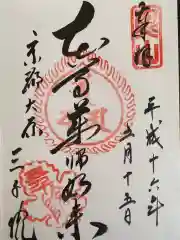 奉拝
平成十六年
五月十五日
本尊薬師如来
京都大原
三千院